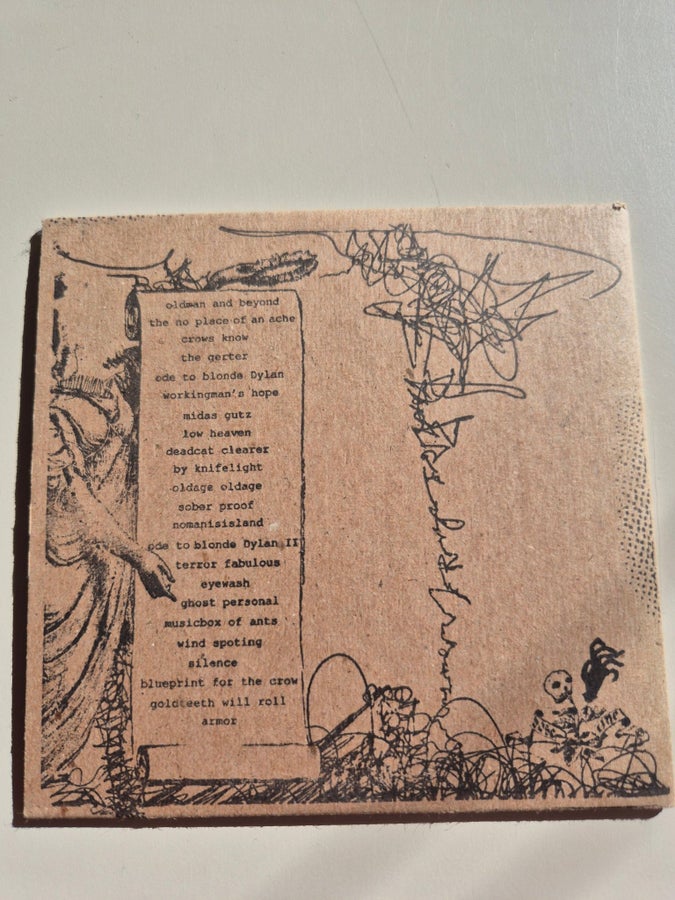 oldman and beyond
the no place of an ache
crows know
the gerter
ode to blonde Dylan
workingman's hope
midas gutz
low heaven
deadcat clearer
by knifelight
oldage oldage
sober proof
nomanisisland
ode to blonde Dylan II
terror fabulous
eyewash
ghost personal
musicbox of ants
wind spoting
silence
blueprint for the crow
goldteeth will roll
armor